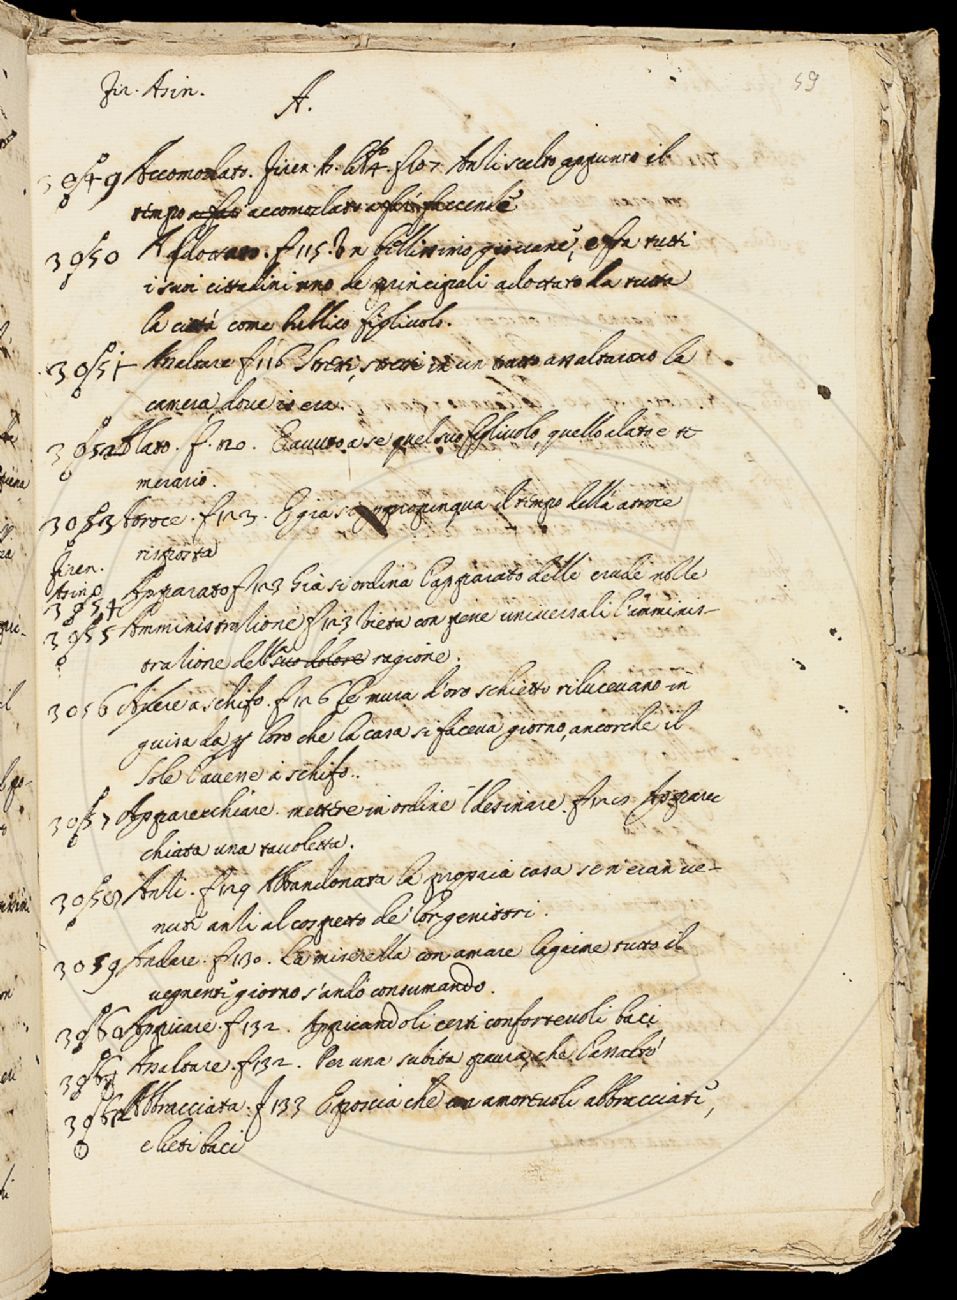 Fir. Asin.
A.
59
3049 Accomodato. Firen. A. f 107 Anzi scelto appunto il
tempo accomodato a far faccende
3050 Addottato. f 115. Un bellissimo giovane, e fra tutti
i suoi cittadini uno de principali adottato da tutta
la città come publico figliuolo.
3051 Assaltare f 116 stretti, stretti in un tratto assaltarono la
camera dove io era.
3052 f. 120. E avuto a se quel suo figliuolo, quello alato e te
merario.
3053 Atroce. f 123. E già s'appropinqua il tempo della atroce
risposta
Firen.
Asino
3054 Apparato f 123 Già si ordina l'apparato delle crudel nozze
3055 Amministrazione f 123 vieta con pene universali l'amminis-
trazione della sua dolore ragione.
3056 Avere a schifo. f 126 Le mura d'oro schietto rilucevano in
guisa da loro che la casa si faceva giorno, ancorchè il
Sole l'avene a schifo..
3057 Apparecchiare. mettere in ordine il desinare. f 12 Appare
chiata una tavoletta.
3058 Anzi. f 129 Abbandonata la propria casa se n'eran ve-
nuti anzi al cospetto de' lor genitori.
3059 Andare. f 130. La miserella con amare lagrime tutto il
vegnente giorno s'andò consumando.
3060 Appicare. f 132. Appicandoli certi confortevoli baci
3061 Assaltare. f 132. Per una subita paura, che l'assaltò
3062 Abbracciata. f 133 E poscia che con amorevoli abbracciati,
e lieti baci